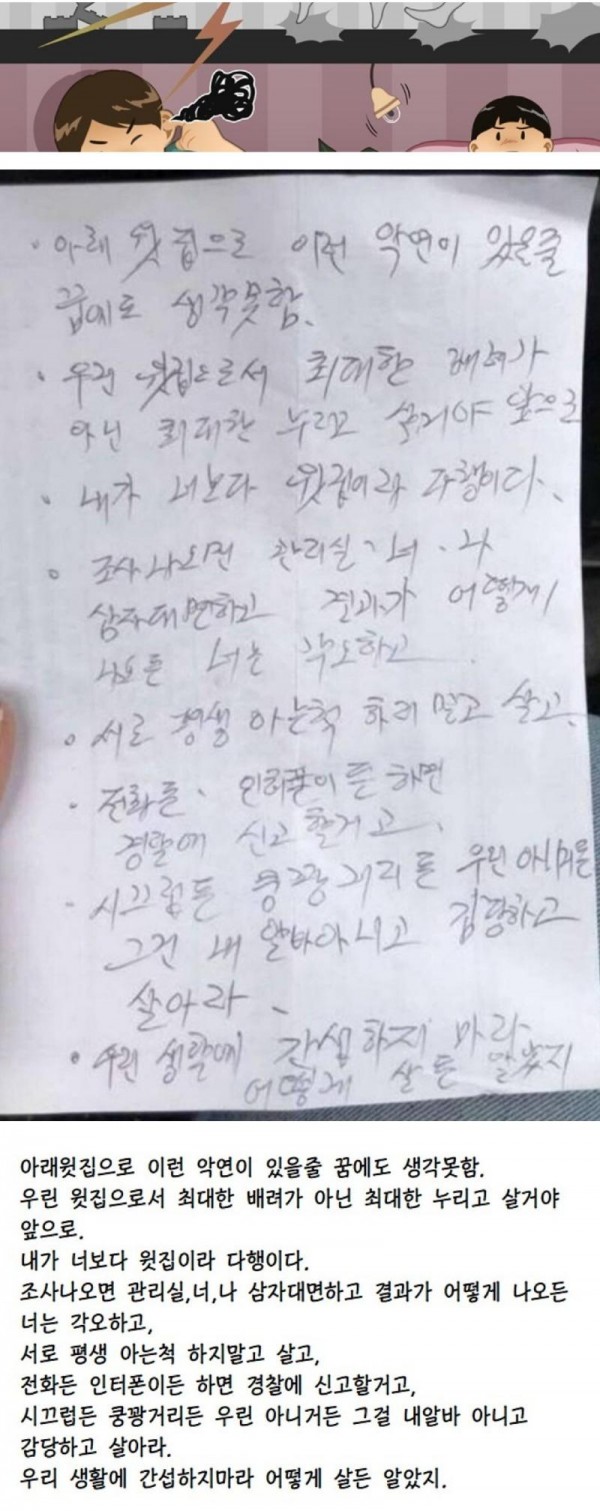 · 아래 윗집으로 이런 악연이 있을줄
꿈에도 생각못함.
· 우린 윗집으로서 최대한 배려가
아닌 최대한 누리고 살거야 앞으로
· 내가 너보다 윗집이라 다행이다.
· 조사나오면 관리실·너·나
삼자대면하고 결과가 어떻게
나오든 너는 각오하고
· 서로 평생 아는척 하지 말고 살고.
· 전화든. 인터폰이든 하면
경찰에 신고할거고.
· 시끄럽든 쿵쾅거리든 우린 아니거든
그건 내 알바아니고 감당하고
살아라.
· 우린 생활에 간섭하지 마라
어떻게 살든 알았지
아래윗집으로 이런 악연이 있을줄 꿈에도 생각못함.
우린 윗집으로서 최대한 배려가 아닌 최대한 누리고 살거야
앞으로.
내가 너보다 윗집이라 다행이다.
조사나오면 관리실,너,나 삼자대면하고 결과가 어떻게 나오든
너는 각오하고,
서로 평생 아는척 하지말고 살고,
전화든 인터폰이든 하면 경찰에 신고할거고,
시끄럽든 쿵쾅거리든 우린 아니거든 그걸 내알바 아니고
감당하고 살아라.
우리 생활에 간섭하지마라 어떻게 살든 알았지.